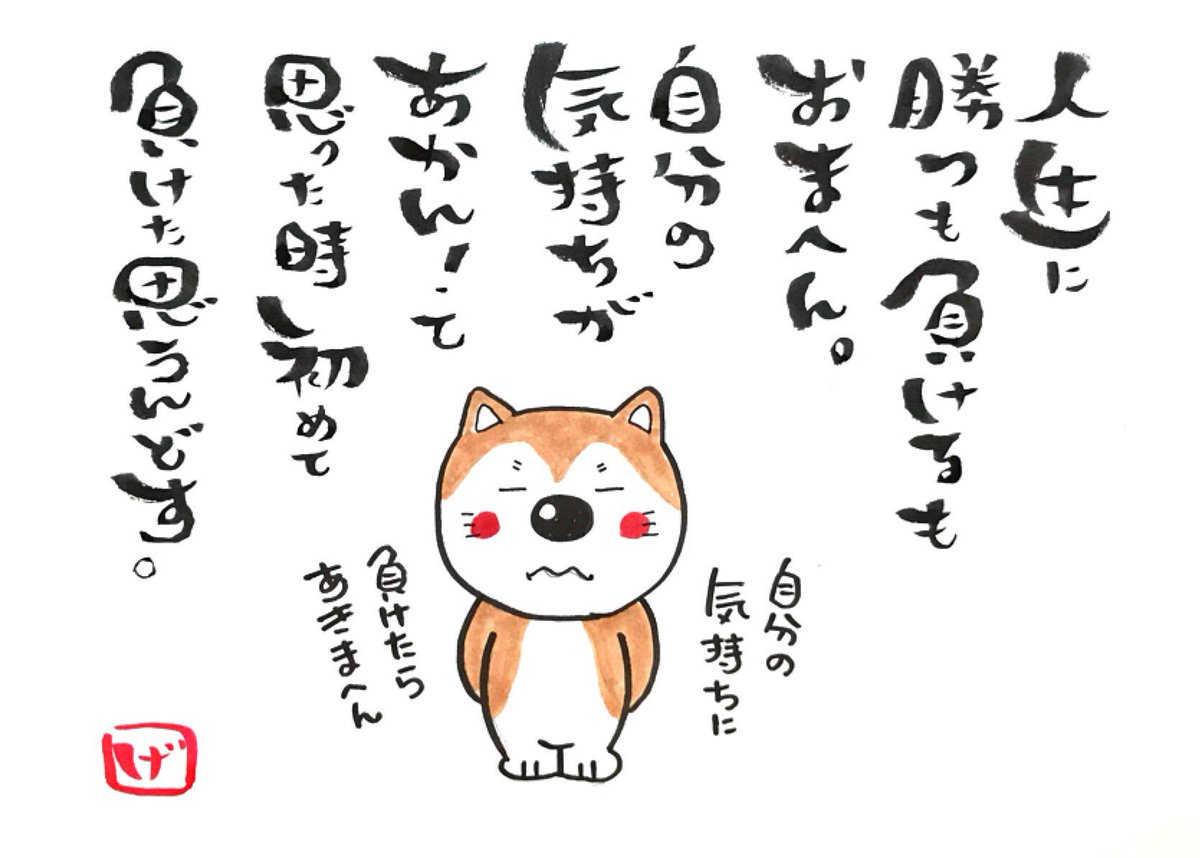 人生に
勝つも負けるも
おまへん。
自分の
気持ちが
あかん!て
思った時初めて
負けた思うんどす。
自分の
気持ちに
負けたら
あきまへん
げ